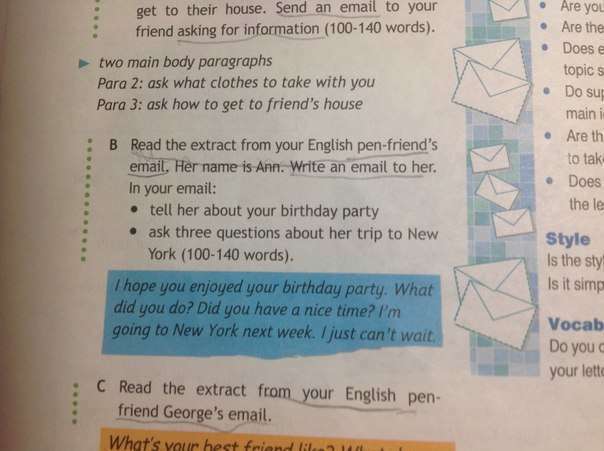 get to their house. Send an email to your
friend asking for information (100-140 words).
two main body paragraphs
Para 2: ask what clothes to take with you
Para 3: ask how to get to friend's house
B Read the extract from your English pen-friend's
email. Her name is Ann. Write an email to her.
In your email:
• tell her about your birthday party
• ask three questions about her trip to New
York (100-140 words).
I hope you enjoyed your birthday party. What
did you do? Did you have a nice time? I'm
going to New York next week. I just can't wait.
C Read the extract from your English pen-
friend George's email.
What's your best friend like?
• Are you
• Are the
• Does e
topic s
• Do sup
main i
• Are th
to tak
• Does
the le
Style
Is the sty
Is it simp
Vocab
Do you c
your lette